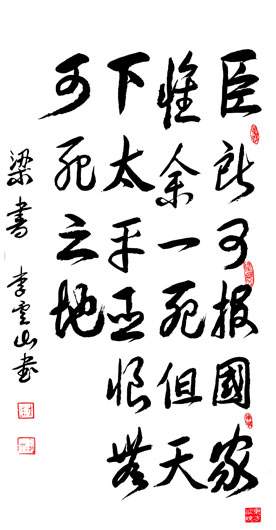 臣所可报國家
惟余一死但天
下太平臣恨無
可死之地
梁書 李雲山書